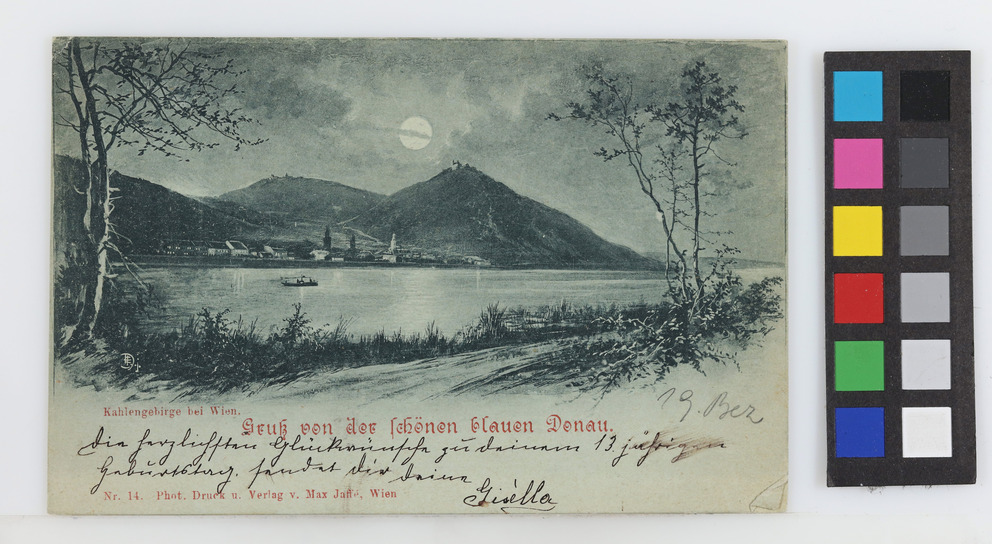 19. Bez
Kahlengebirge bei Wien.
Gruß von der schönen blauen Donau.
die herzlichsten Glückwünsche zu deinem 13 jährigen
Geburtstag, sendet dir deine
Gisella
Nr. 14. Phot. Druck u. Verlag v. Max Jaffé, Wien